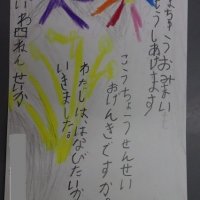 ょちゅうおみまい
もうしあげます
こうちょうせんせい
おげんきですか。
わたしは、はなびたいか
いきました。
いわ四ねん せいか